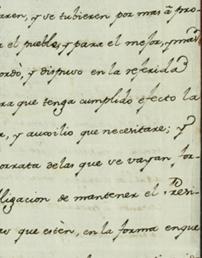 aren, y se tubieren por mas a pro-
a el pueblo, y para el mejor, y mas
ordò, y dispuso en la referida
ra que tenga cumplido efecto la
r, y auxilio que necesitare; y
orrata delas que se vayan for-
ligacion de mantener el Presi-
que estèn, en la forma enque